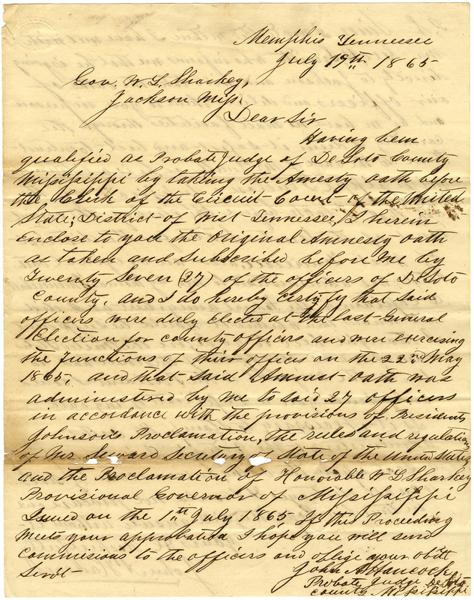 Memphis Tennessee
July 19th 1865
Gov. W. L. Sharkey,
Jackson Miss.
Dear Sir
Having been
qualified as Probate Judge of DeSoto County
Mississippi by taking the Amesty oath before
the Clerk of the Circuit Court of the United
States District of West Tennessee, I herein
enclose to you the Original Amnesty oath
as taken and subscribed before me by
Twenty Seven (27) of the officers of DeSoto
County, and I do hereby certify that said
officers were duly elected at the last General
Election for county officers and were exercising
the functions of their offices on the 22nd May
1865, and that said Amnest oath was
administered by me to said 27 officers
in accordance with the provisions of President
Johnson's Proclamation, the rules and regulations
of Mr. Seward Secretary of State of the United States
and the Proclamation of Honorable W L Sharkey
Provisional Governor of Mississippi
Issued on the 1st July 1865 If the Proceeding
meets your approbation I hope you will send
commissions to the officers and oblige your obdt
Servt
John A Hancock
Probate Judge DeSoto
county Mississippi